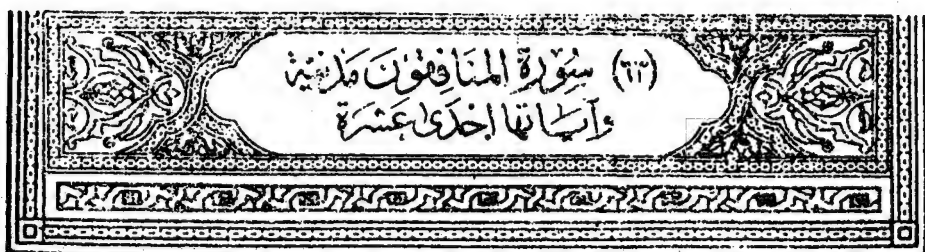 (٦٣) سُورَةُ المُنَافِقُونَ مَدَنِيَّة
وَآيَاتُهَا إِحْدَى عَشَرَة